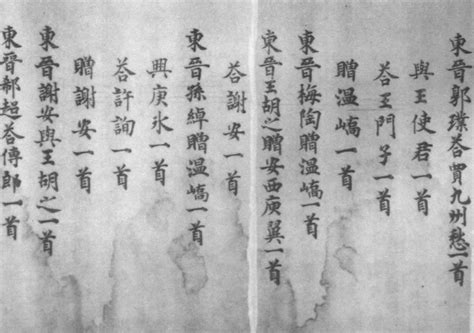 東晋郭璞荅賈九州愁一首
與王使君一首
荅王門子一首
贈温嶠一首
東晋梅陶贈温嶠一首
東晋王胡之贈安西庾翼一首
荅謝安一首
東晋孫綽贈温嶠一首
興庾氷一首
荅許詢一首
贈謝安一首
東晋謝安與王胡之一首
東晋郗超荅傅郎一首